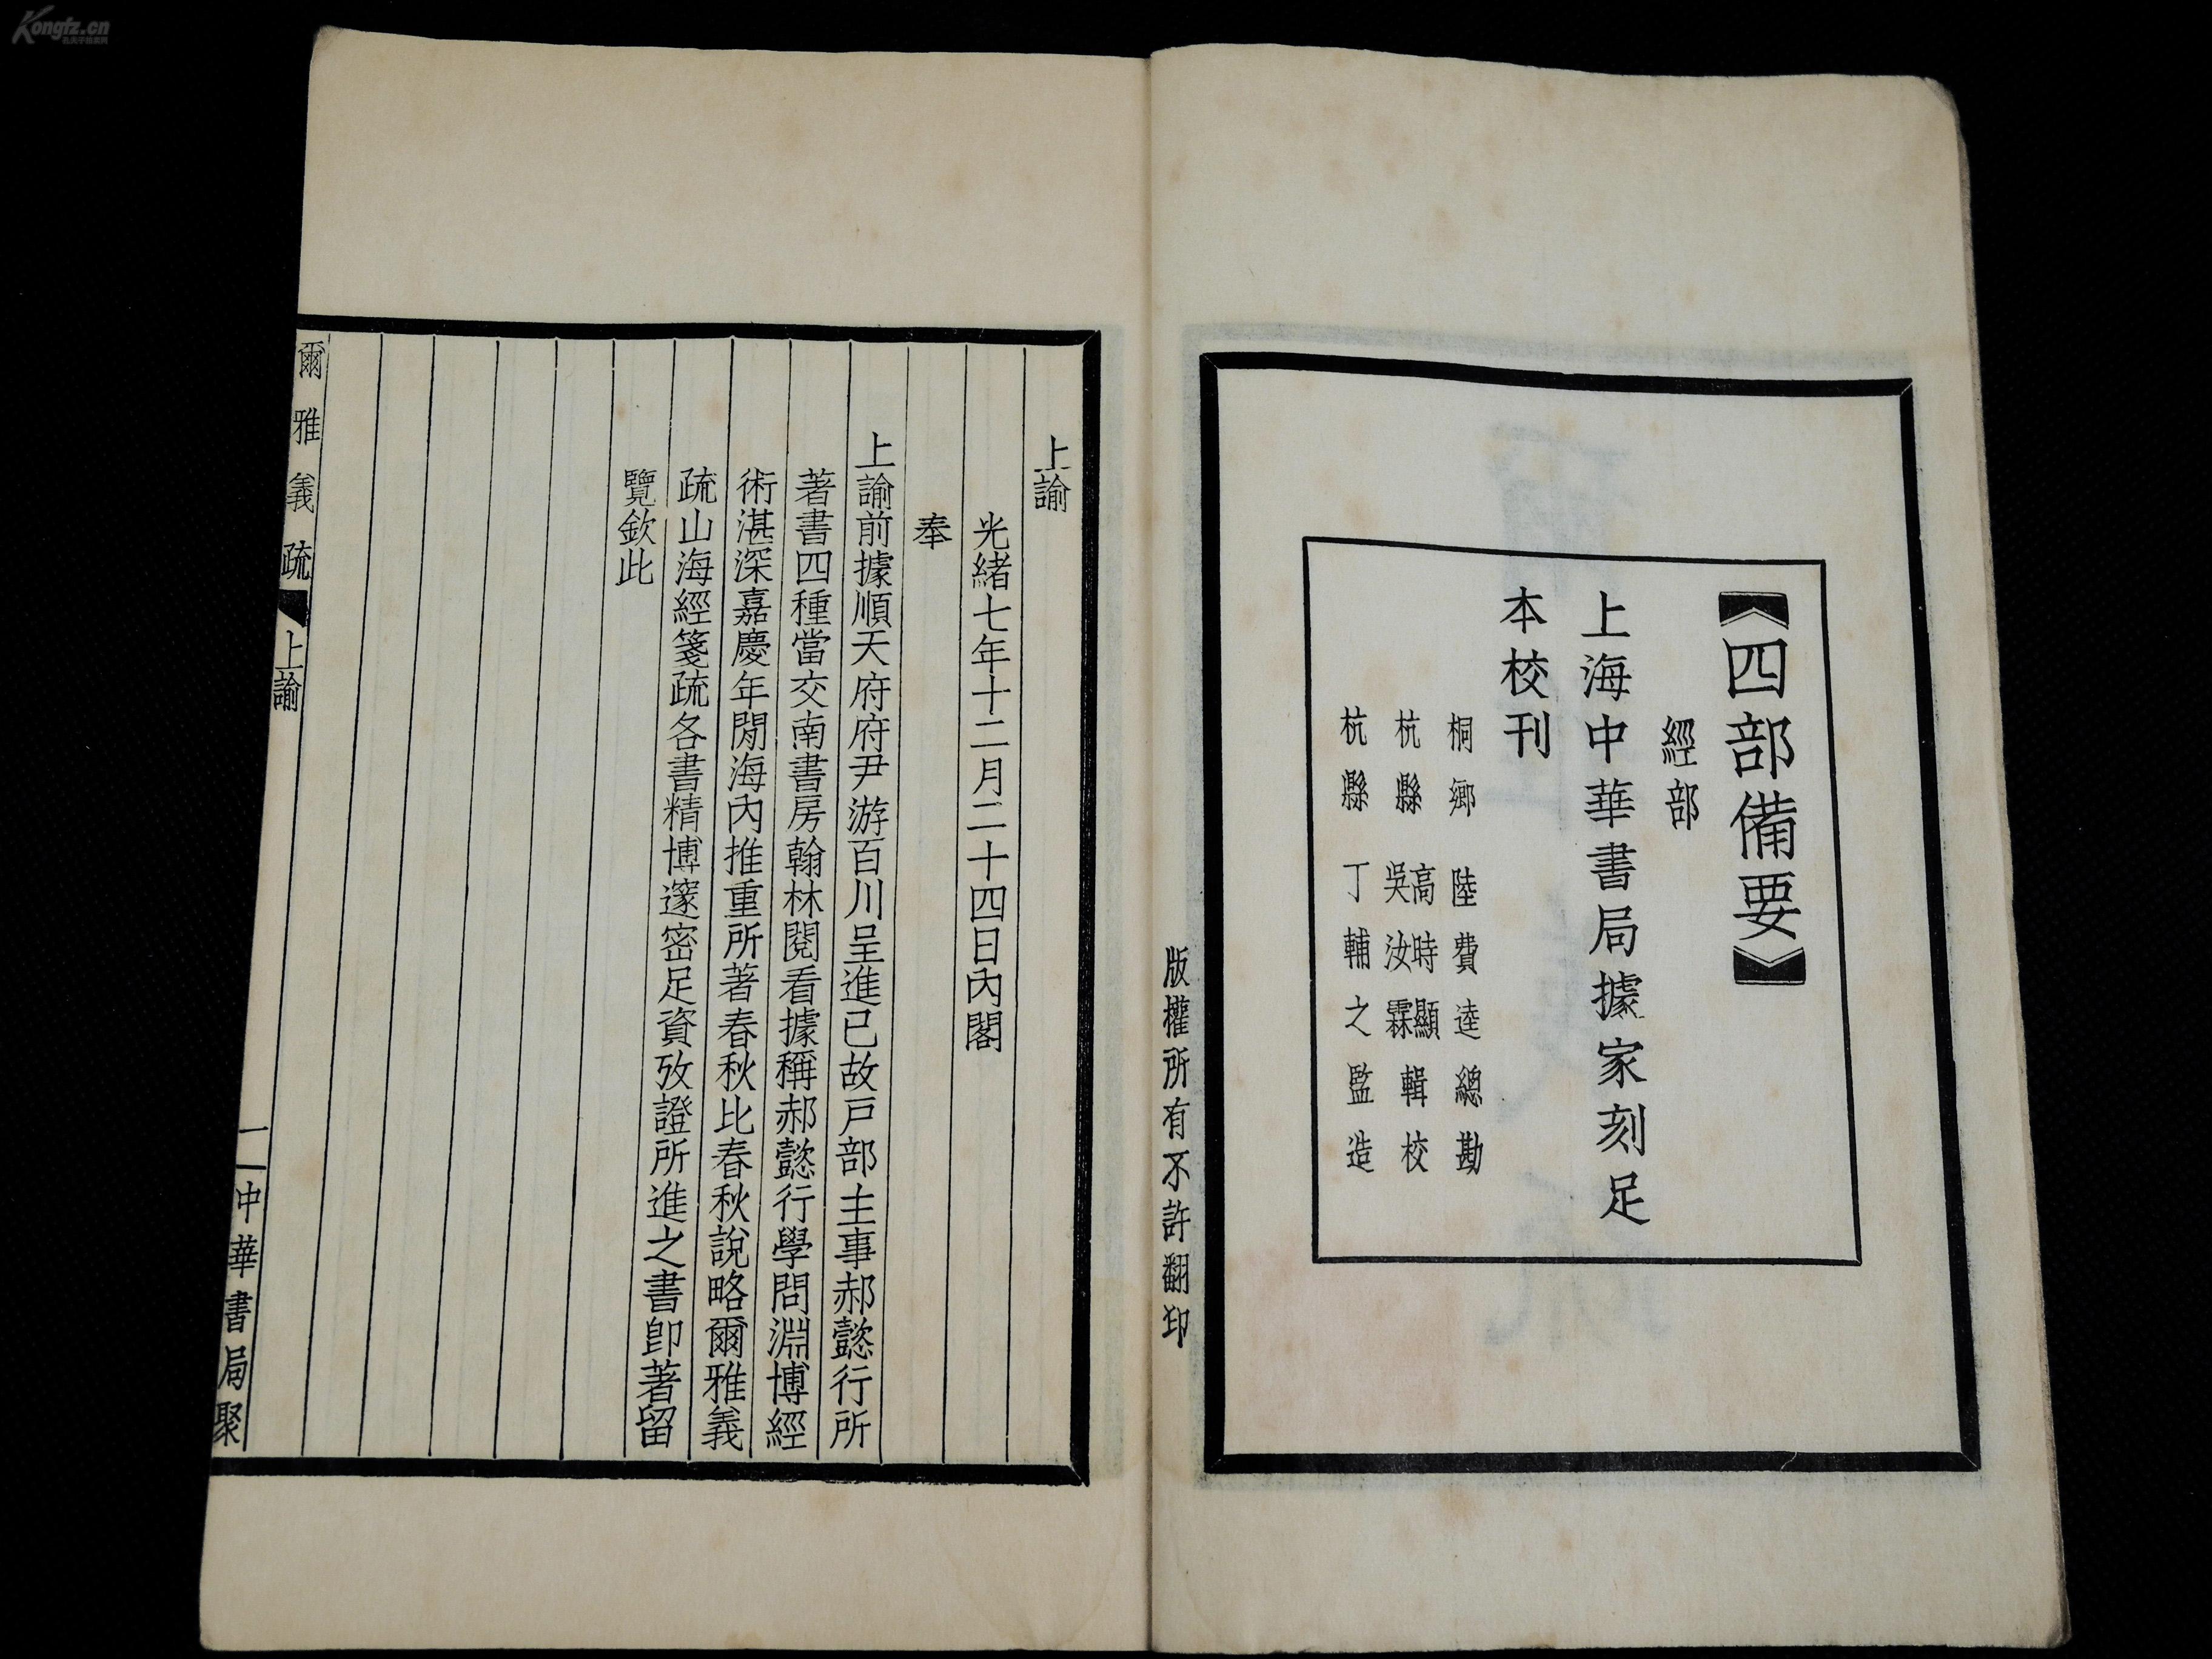 Kongfz.cn
孔夫子舊書网
【四部備要】
經部
上海中華書局據家刻足
本校刊
桐鄉 陸費逵總勘
杭縣 高時顯 吳汝霖 輯校
杭縣 丁輔之監造
版權所有不許翻印
上諭
光緒七年十二月二十四日內閣
奉
上諭前據順天府府尹游百川呈進已故戶部主事郝懿行所
著書四種當交南書房翰林閱看據稱郝懿行學問淵博經
術湛深嘉慶年閒海內推重所著春秋比春秋說略爾雅義
疏山海經箋疏各書精博邃密足資攷證所進之書卽著留
覽欽此
爾雅義疏 上諭
一 中華書局聚